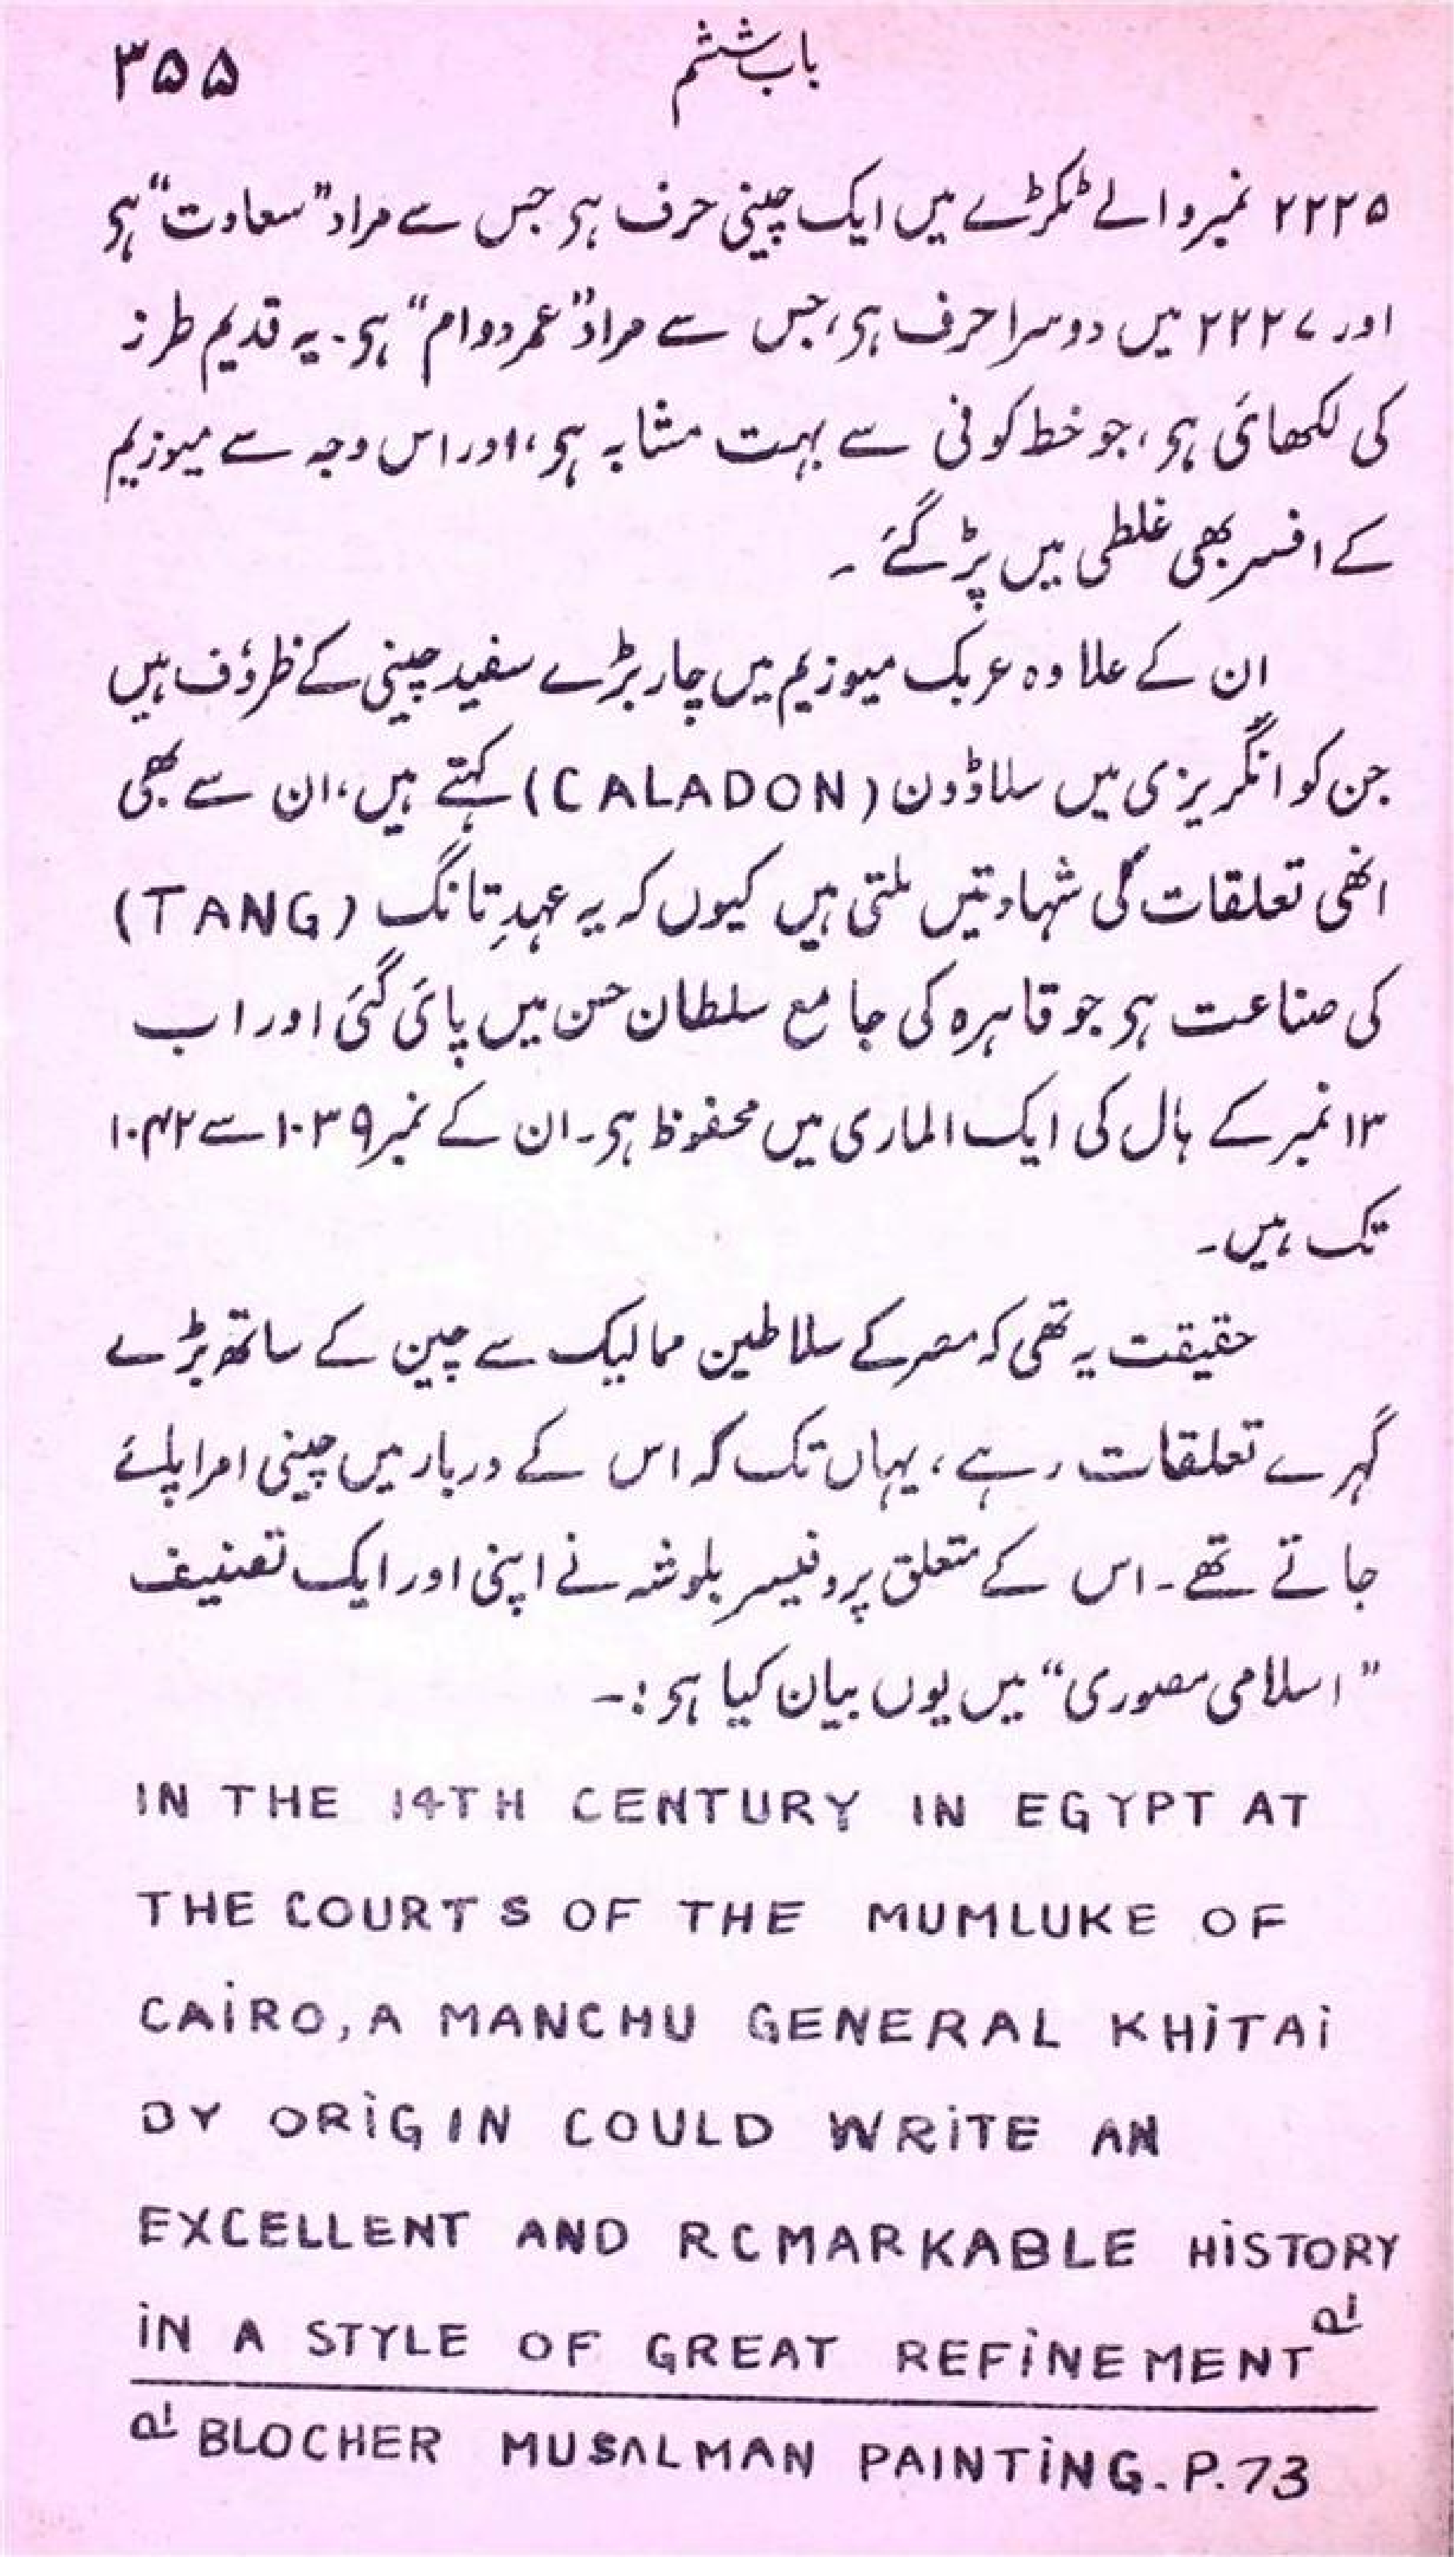 باب ششم
۳۵۵
۲۲۲۵ نمبر والے ٹکڑے میں ایک چینی حرف ہی جس سے مراد ”سعاوت“ ہی
اور ۲۲۲۷ میں دوسرا حرف ہی، جس سے مراد ”عمر دوام“ ہی۔ یہ قدیم طرز
کی لکھائی ہی، جو خط کوفی سے بہت مشابہ ہی، اور اس وجہ سے میوزیم
کے افسر بھی غلطی میں پڑ گئے ۔
ان کے علاوہ عربک میوزیم میں چار بڑے سفید چینی کے ظروُف ہیں
جن کو انگریزی میں سلاڈون (CALADON) کہتے ہیں، ان سے بھی
انھی تعلقات کی شہادتیں ملتی ہیں کیوں کہ یہ عہدِ تانگ (TANG)
کی صناعت ہی جو قاہرہ کی جامع سلطان حسن میں پائی گئی اور اب
۱۳ نمبر کے ہال کی ایک الماری میں محفوظ ہی۔ ان کے نمبر ۱۰۳۹ سے ۱۰۴۲
تک ہیں۔
حقیقت یہ تھی کہ مصر کے سلاطین ممالیک سے چین کے ساتھ بڑے
گہرے تعلقات رہے، یہاں تک کہ اس کے دربار میں چینی امرا پائے
جاتے تھے۔ اس کے متعلق پروفیسر بلوشہ نے اپنی اور ایک تصنیف
”اسلامی مصوری“ میں یوں بیان کیا ہی :۔
IN THE 14TH CENTURY IN EGYPT AT
THE COURTS OF THE MUMLUKE OF
CAIRO, A MANCHU GENERAL KHITAI
BY ORIGIN COULD WRITE AN
EXCELLENT AND RCMARKABLE HISTORY
IN A STYLE OF GREAT REFINEMENT
BLOCHER MUSALMAN PAINTING. P. 73